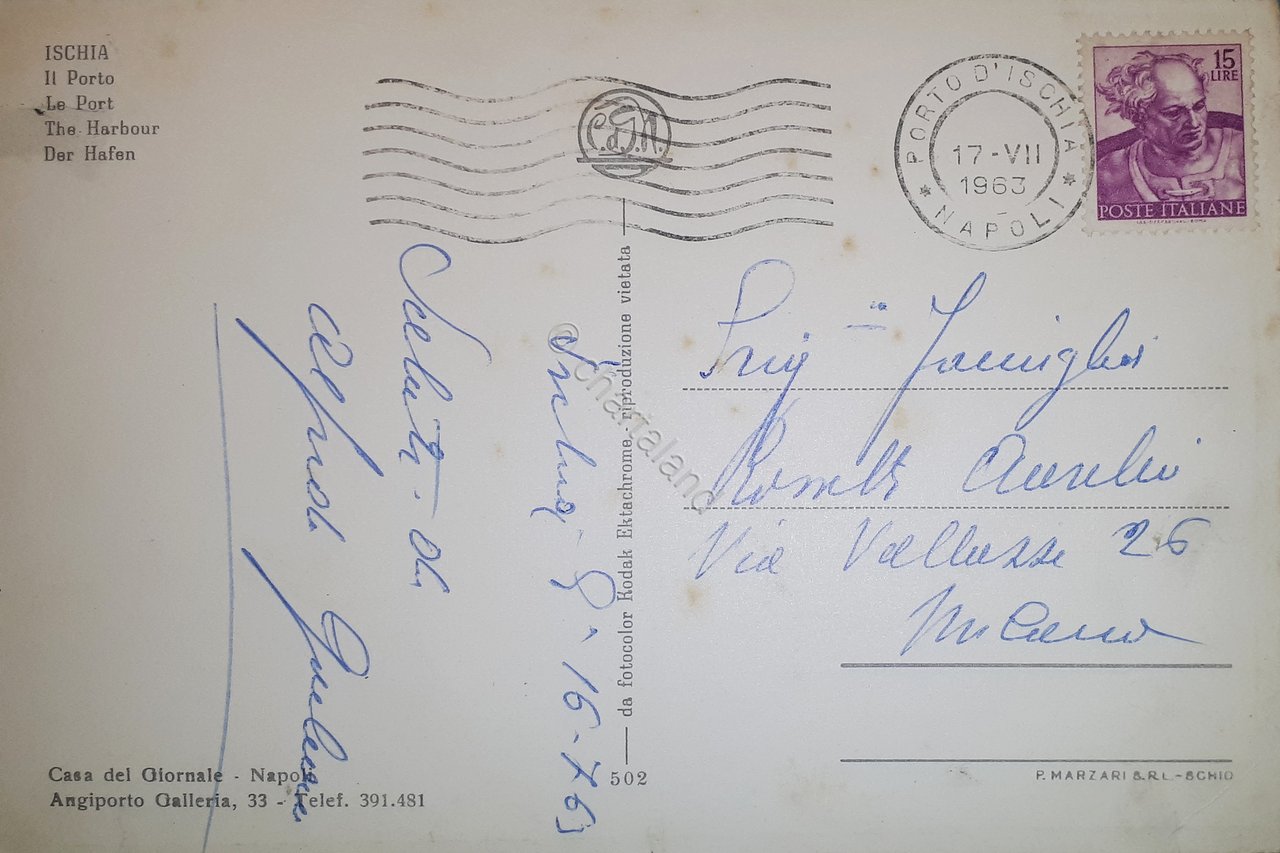 ISCHIA
Il Porto
Le Port
The Harbour
Der Hafen
C.d.G.N.
PORTO D'ISCHIA
17-VII
1963
* NAPOLI *
15
LIRE
POSTE ITALIANE
Ischia
16-7-63
Saluti da
Alfredo
Famiglia
Aurelio
Via Vallazze 26
Milano
da fotocolor Kodak Ektachrome - riproduzione vietata
© chartaland
502
Casa del Giornale - Napoli
Angiporto Galleria, 33 - Telef. 391.481
P. MARZARI S.R.L.-SCHIO